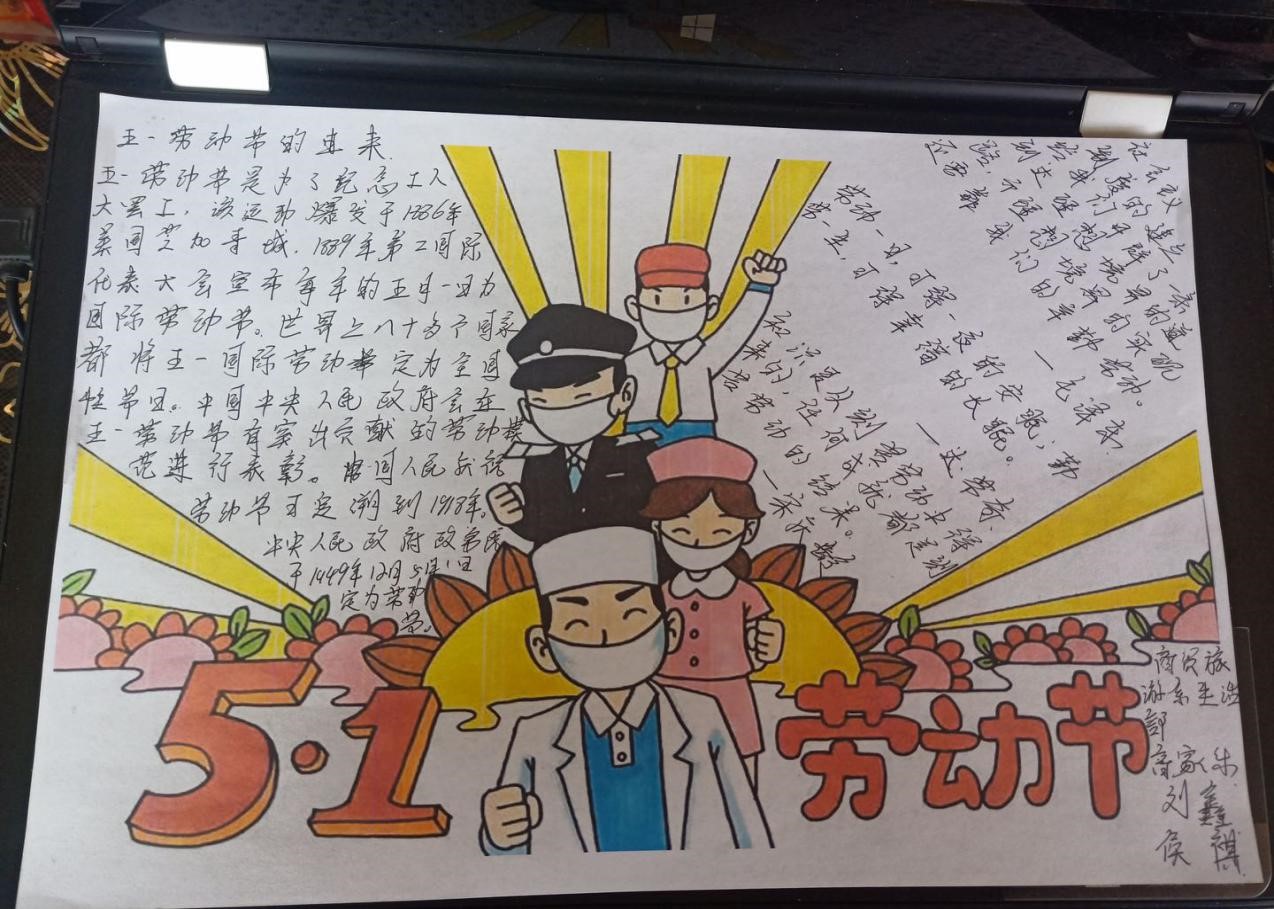 五一劳动节的由来
五一劳动节是为了纪念工人
大罢工，该运动爆发于1886年
美国芝加哥城．1889年第二国际
代表大会宣布每年的五月一日为
国际劳动节。世界上八十多个国家
都将五一国际劳动节定为全国
性节日。中国中央人民政府会在
五一劳动节前家出贡献的劳动模
范进行表彰。中国人民庆祝
劳动节可定溯到1918年。
中央人民政府政务院
于1949年12月5月1日
定为劳动
节。
劳动一日，可得一夜的安眠；勤
劳一生，可得幸福的长眠。
一达芬奇
知识是从刻苦劳动中得
来的，任何成就都是刻
苦劳动的结果。
一宋庆龄
社会主义制度的建立
给我们开辟了一条道
到达理想境界的
路，而理想境界的实现
还要靠我们的辛勤劳动。
一毛泽东
5·1
劳动节
商贸旅
游系生活
部
商家乐
刘鑫
侯祺